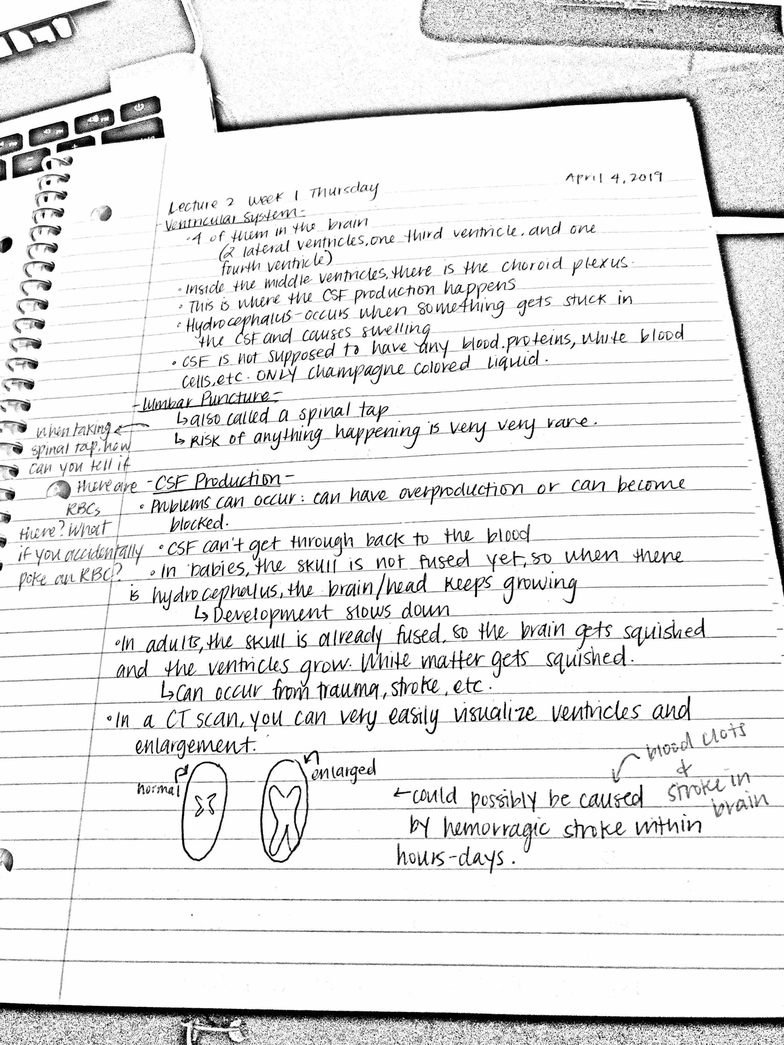 April 4, 2019
Lecture 2 Week 1 Thursday
Ventricular System-
· 4 of them in the brain
(2 lateral ventricles, one third ventricle, and one
fourth ventricle)
· Inside the middle ventricles, there is the choroid plexus.
· This is where the CSF production happens
· Hydrocephalus - occurs when something gets stuck in
the CSF and causes swelling
· CSF is not supposed to have any blood, proteins, white blood
cells, etc. ONLY champagne colored liquid.
-Lumbar Puncture-
↳ also called a spinal tap
↳ Risk of anything happening is very very rare.
when taking
spinal tap, how
can you tell if
there are
RBCs
there? What
if you accidentally
poke an RBC?
-CSF Production-
· Problems can occur: can have overproduction or can become
blocked.
· CSF can't get through back to the blood
· In babies, the skull is not fused yet, so when there
is hydrocephalus, the brain/head keeps growing
↳ Development slows down
· In adults, the skull is already fused, so the brain gets squished
and the ventricles grow. White matter gets squished.
↳ Can occur from trauma, stroke, etc.
· In a CT scan, you can very easily visualize ventricles and
enlargement.
normal
enlarged
← could possibly be caused
by hemorragic stroke within
hours-days.
blood clots
&
stroke in
brain